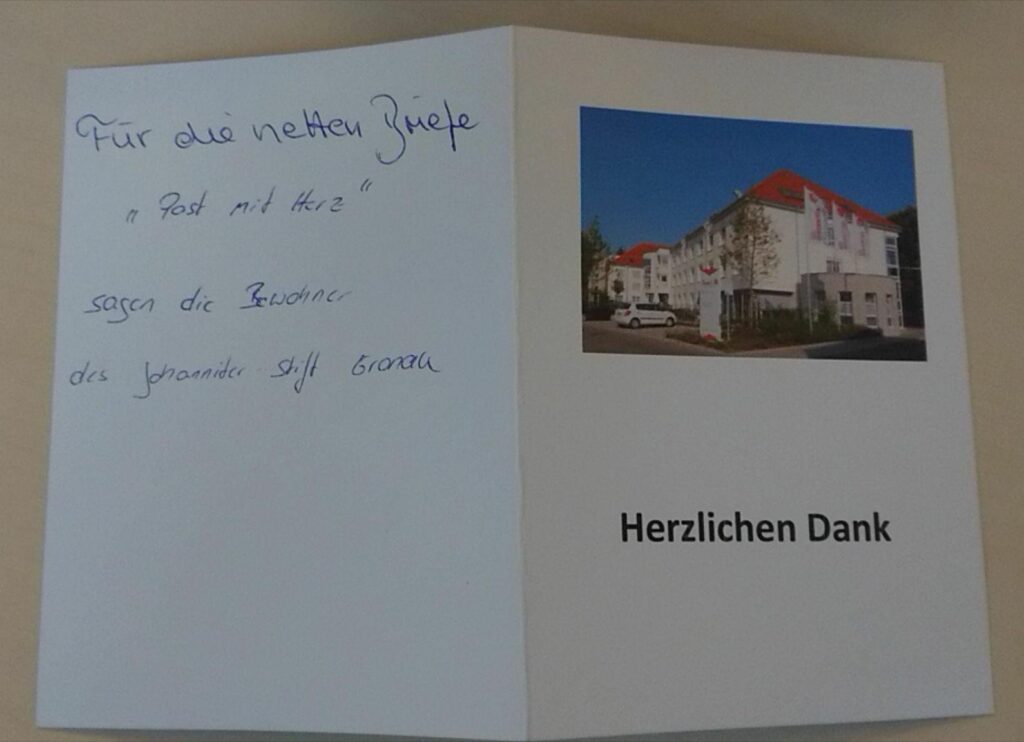 Für die netten Briefe
„Post mit Herz“
sagen die Bewohner
des Johanniter Stift Gronau
Herzlichen Dank